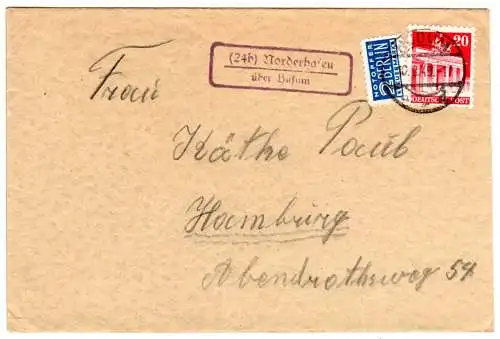 (24b) Norderhafen
über Husum
NOTOPFER
2 BERLIN
STEUERMARKE
20
DEUTSCHE POST
Frau
Käthe Paub
Hamburg
Abendrothsweg 54